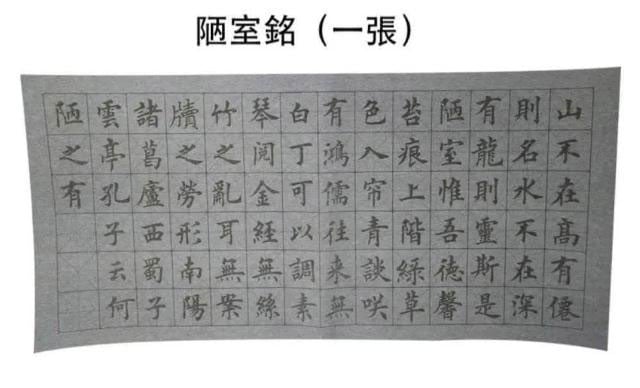 陋室銘（一張）
山不在髙有僊
則名水不在深
有龍則靈斯是
陋室惟吾德馨
苔痕上階綠草
色入帘青談咲
有鴻儒往来無
白丁可以調素
琴閱金經無絲
竹之亂耳無案
牘之勞形南陽
諸葛廬西蜀子
雲亭孔子云何
陋之有